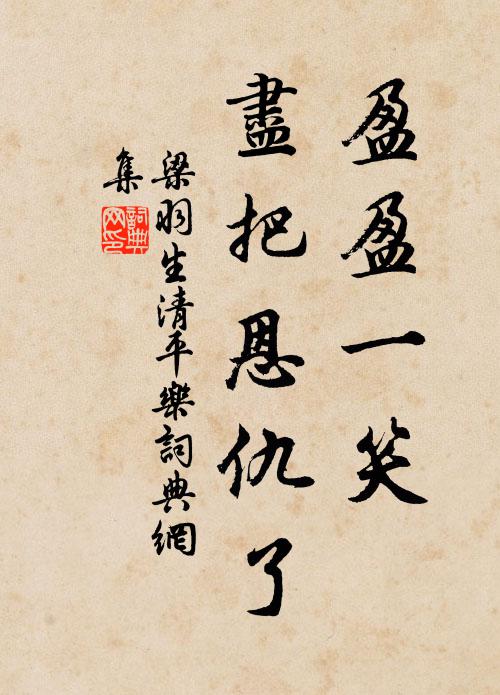 盈盈一笑
盡把恩仇了
梁羽生清平樂詞典網
集
詞典
网印